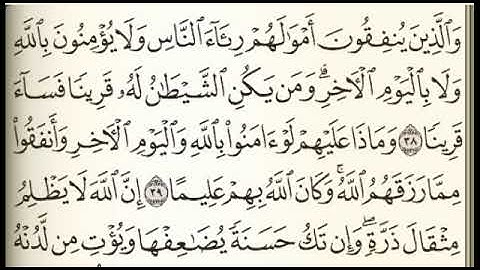 وَٱلَّذِينَ يُنفِقُونَ أَمۡوَٰلَهُمۡ رِئَآءَ ٱلنَّاسِ وَلَا يُؤۡمِنُونَ بِٱللَّهِ
وَلَا بِٱلۡيَوۡمِ ٱلۡأٓخِرِۗ وَمَن يَكُنِ ٱلشَّيۡطَٰنُ لَهُۥ قَرِينٗا فَسَآءَ
قَرِينٗا ٣٨ وَمَاذَا عَلَيۡهِمۡ لَوۡ ءَامَنُواْ بِٱللَّهِ وَٱلۡيَوۡمِ ٱلۡأٓخِرِ وَأَنفَقُواْ
مِمَّا رَزَقَهُمُ ٱللَّهُۚ وَكَانَ ٱللَّهُ بِهِمۡ عَلِيمًا ٣٩ إِنَّ ٱللَّهَ لَا يَظۡلِمُ
مِثۡقَالَ ذَرَّةٖۖ وَإِن تَكُ حَسَنَةٗ يُضَٰعِفۡهَا وَيُؤۡتِ مِن لَّدُنۡهُ